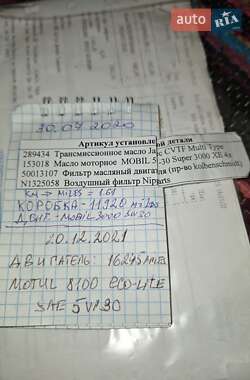 AUTO RIA
30.07.2020
Артикул установлен й детали
289434 Трансмиссионное масло Ja c CVTF Multi Type
153018 Масло моторное MOBIL 5 -30 Super 3000 XE 4л
50013107 Фильтр масляный двигат (пр-во kolbenschmidt)
N1325058 Воздушный фильтр Niparts
КМ → MILES = 1.61
КОРОБКА - 11920
ДВИГ - MOBIL 3000 5W30
20.12.2021
ДВИГАТЕЛЬ: 16245 MILES
MOTUL 8100 ECO-LITE
SAE 5W30